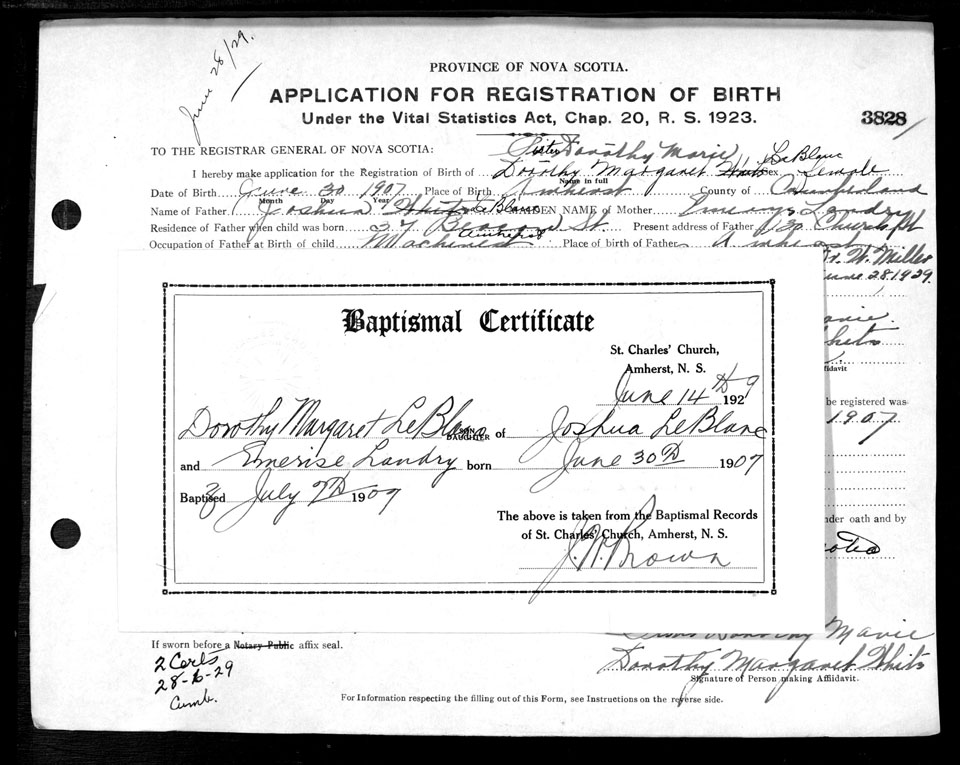 June 28/29.
PROVINCE OF NOVA SCOTIA.
APPLICATION FOR REGISTRATION OF BIRTH
Under the Vital Statistics Act, Chap. 20, R. S. 1923.
3828
TO THE REGISTRAR GENERAL OF NOVA SCOTIA: Sister Dorothy Marie
LeBlanc
I hereby make application for the Registration of Birth of Dorothy Margaret White Sex Female
Name in full
Date of Birth June 30 1907 Place of Birth Amherst County of Cumberland
Month Day Year
Name of Father Joshua White LeBlanc MAIDEN NAME of Mother Landry
Residence of Father when child was born 37 St. Present address of Father 130 Church St
Amherst
Occupation of Father at Birth of child Machinist Place of birth of Father Amherst
W. Miller
June 28.1929.
Baptismal Certificate
St. Charles' Church,
Amherst, N. S.
June 14th 1929
Dorothy Margaret LeBlanc SON DAUGHTER of Joshua LeBlanc
and Emerise Landry born June 30th 1907
Baptised July 7th 1907
The above is taken from the Baptismal Records
of St. Charles' Church, Amherst, N. S.
J. W. Brown
arie.
hite
fidavit
be registered was
1907
nder oath and by
otia
If sworn before a Notary Public affix seal.
2 Certs
28-6-29
Cumb.
Dorothy Marie
Dorothy Margaret White
Signature of Person making Affidavit.
For Information respecting the filling out of this Form, see Instructions on the reverse side.